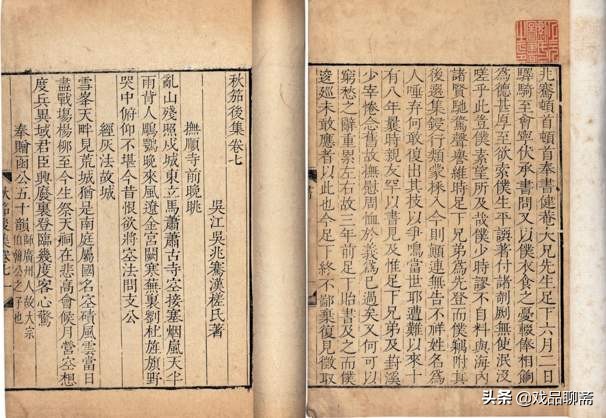 兆騫頓首頓首奉書健菴大兄先生足下六月二日
驛騎至會寧伏承書問又以僕衣食之憂輟俸相餉
為德甚厚至欲索僕生平譔著付諸剞劂無使泯沒
嗟乎此豈僕素望所及哉僕少時謬不自料與海內
諸賢馳騖聲譽維時足下兄弟爲先登而僕竊附其
後選集鋟行類蒙採入今則顛連無告不祥姓名爲
人唾弃何敢復出其技以爭鳴當世耶遭難以來十
有八年曩時親友罕以書見及惟足下兄弟及葑溪
少宰惓念舊故撫慰周恤於義爲已過矣又何可以
窮愁之辭重累左右故三年前足下貽書及之而僕
逡巡未敢應者以此也今足下終不鄙棄復見徵取
書
秋笳後集卷七
吳江吳兆騫漢槎氏著
撫順寺前晚眺
亂山殘照戍城東立馬蕭蕭古寺空接塞烟嵐天半
雨背人鵰鶚晚來風遼金宮闕寒蕪裏劉杜旌旗野
哭中俯仰不堪今昔恨欲將空法問支公
經灰法故城
雪峯天畔見荒城猶是南庭屬國名空磧風雲當日
盡戰場楊柳至今生祭天祠在悲高會候月營空想
度兵異域君臣興廢裏登臨幾度客心驚
奉贈函公五十韻 師廣州人故大宗
伯韓公之子也
秋笳後集卷七 一
头条 @戏品聊斋